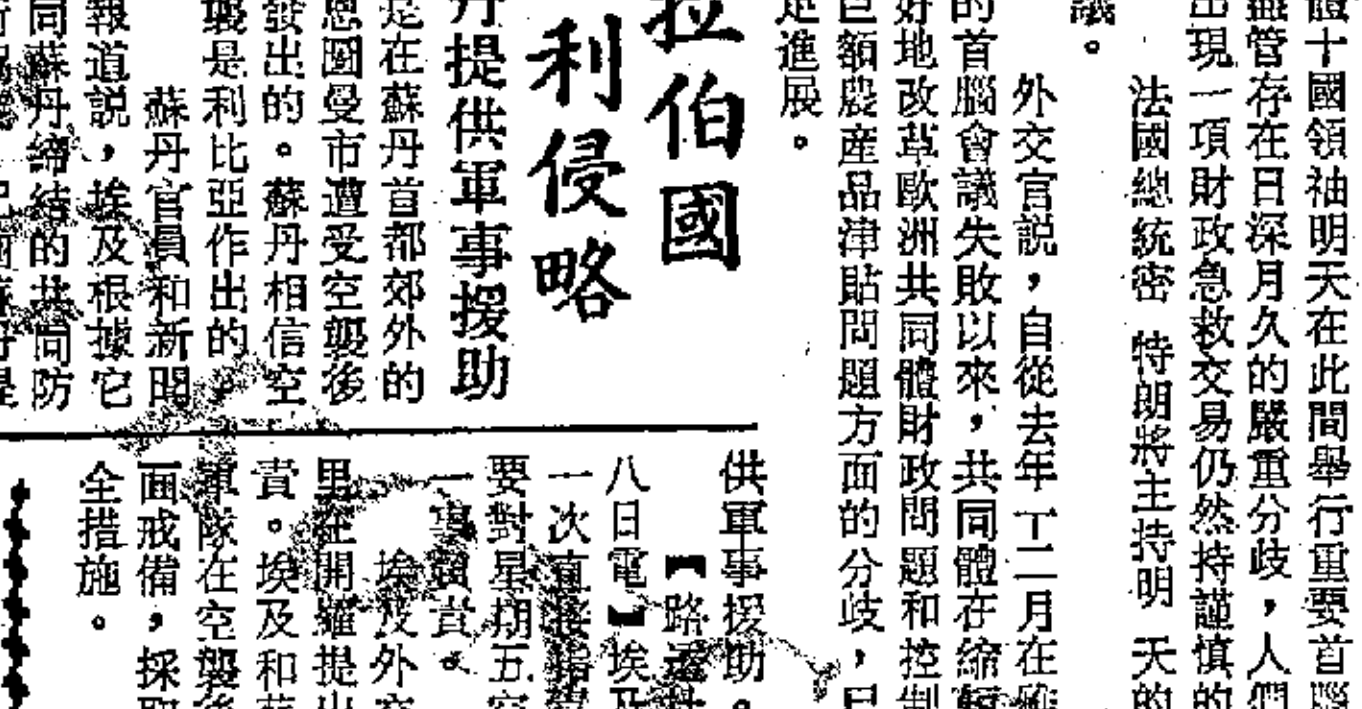 體十國領袖明天在此間舉行重要首腦
盡管存在日深月久的嚴重分歧，人們
出現一項財政急救交易仍然持謹慎的
法國總統密特朗將主持明天的
議。
外交官說，自從去年十二月在雅
的首腦會議失敗以來，共同體在縮
好地改革歐洲共同體財政問題和控制
巨額農産品津貼問題方面的分歧，
進展。
拉伯國
利侵略
丹提供軍事援助
是在蘇丹首都郊外的
恩圖曼市遭受空襲後
發出的。蘇丹相信空
襲是利比亞作出的，
蘇丹官員和新聞
報道說，埃及根據它
同蘇丹締結的共同防
供軍事援助。
【路透社
八日電】埃及
一次直接指
要對星期五空
一事負責。
埃及外交
里在開羅提出
責。埃及和蘇
軍隊在空襲後
面戒備，採取
全措施。